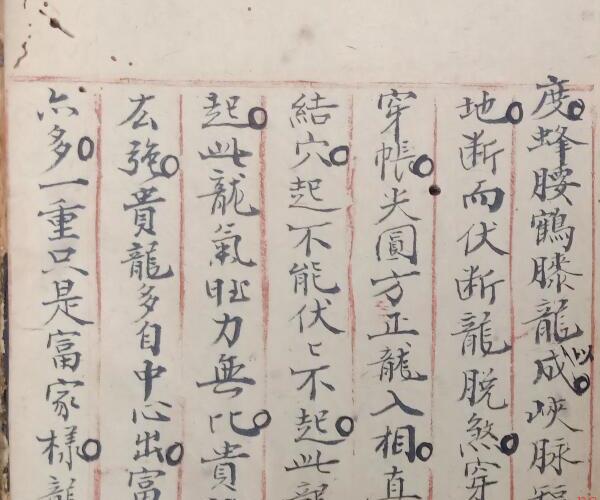 度○蜂腰鶴膝龍成以○峽脉
地○断而伏断龍脫煞○穿
穿帳○尖圓方正龍入相○直
結穴○起不能伏〻不起○此龍
起○此龍氣旺力無比○貴
広强○貴龍多自中心出○富
亦多○一重只是富家樣○龍